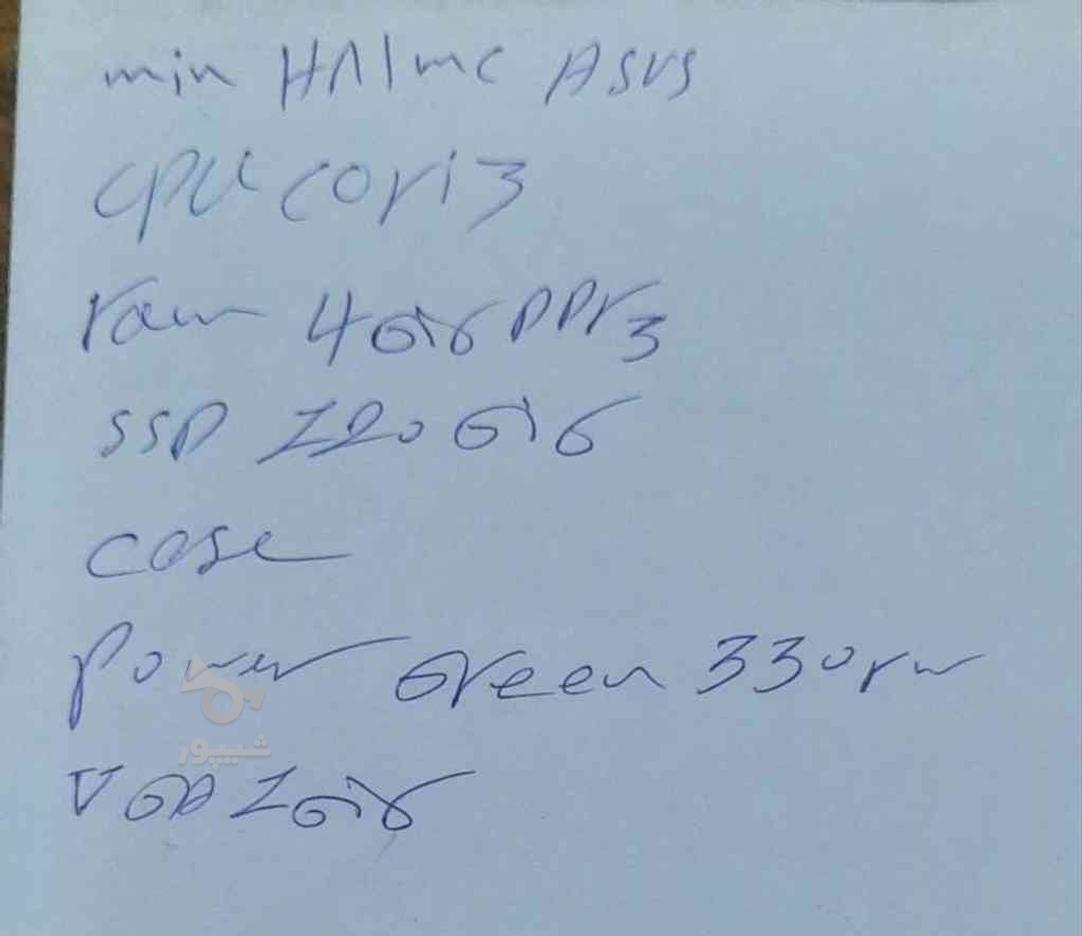 min H81mc Asus
CPU cori3
ram 4Gig DDr3
SSD 120 Gig
case
Power Green 330rw
VGA 1Gig
شیپور